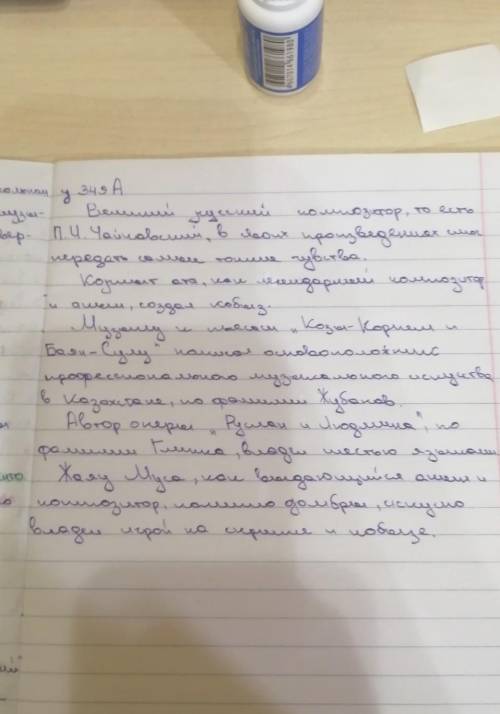 у 349А
музы-
вер-
Великий русский композитор, то есть
П.И. Чайковский, в своих произведениях смог
передать самые тонкие чувства.
Коркыт ата, как легендарный композитор
и акын, создал кобыз.
Музыку к пьесам „Козы-Корпеш и
Баян-Сулу" написал основоположник
профессионального музыкального искуства
в Казахтане, по фамилии Жубанов.
Автор оперы „Руслан и Людмила", по
фамилии Глинка, владел шестью языками
Жаяу Муса, как выдающийся акын и
композитор, помимо домбры, искусно
владел игрой на скрипке и кобызе.